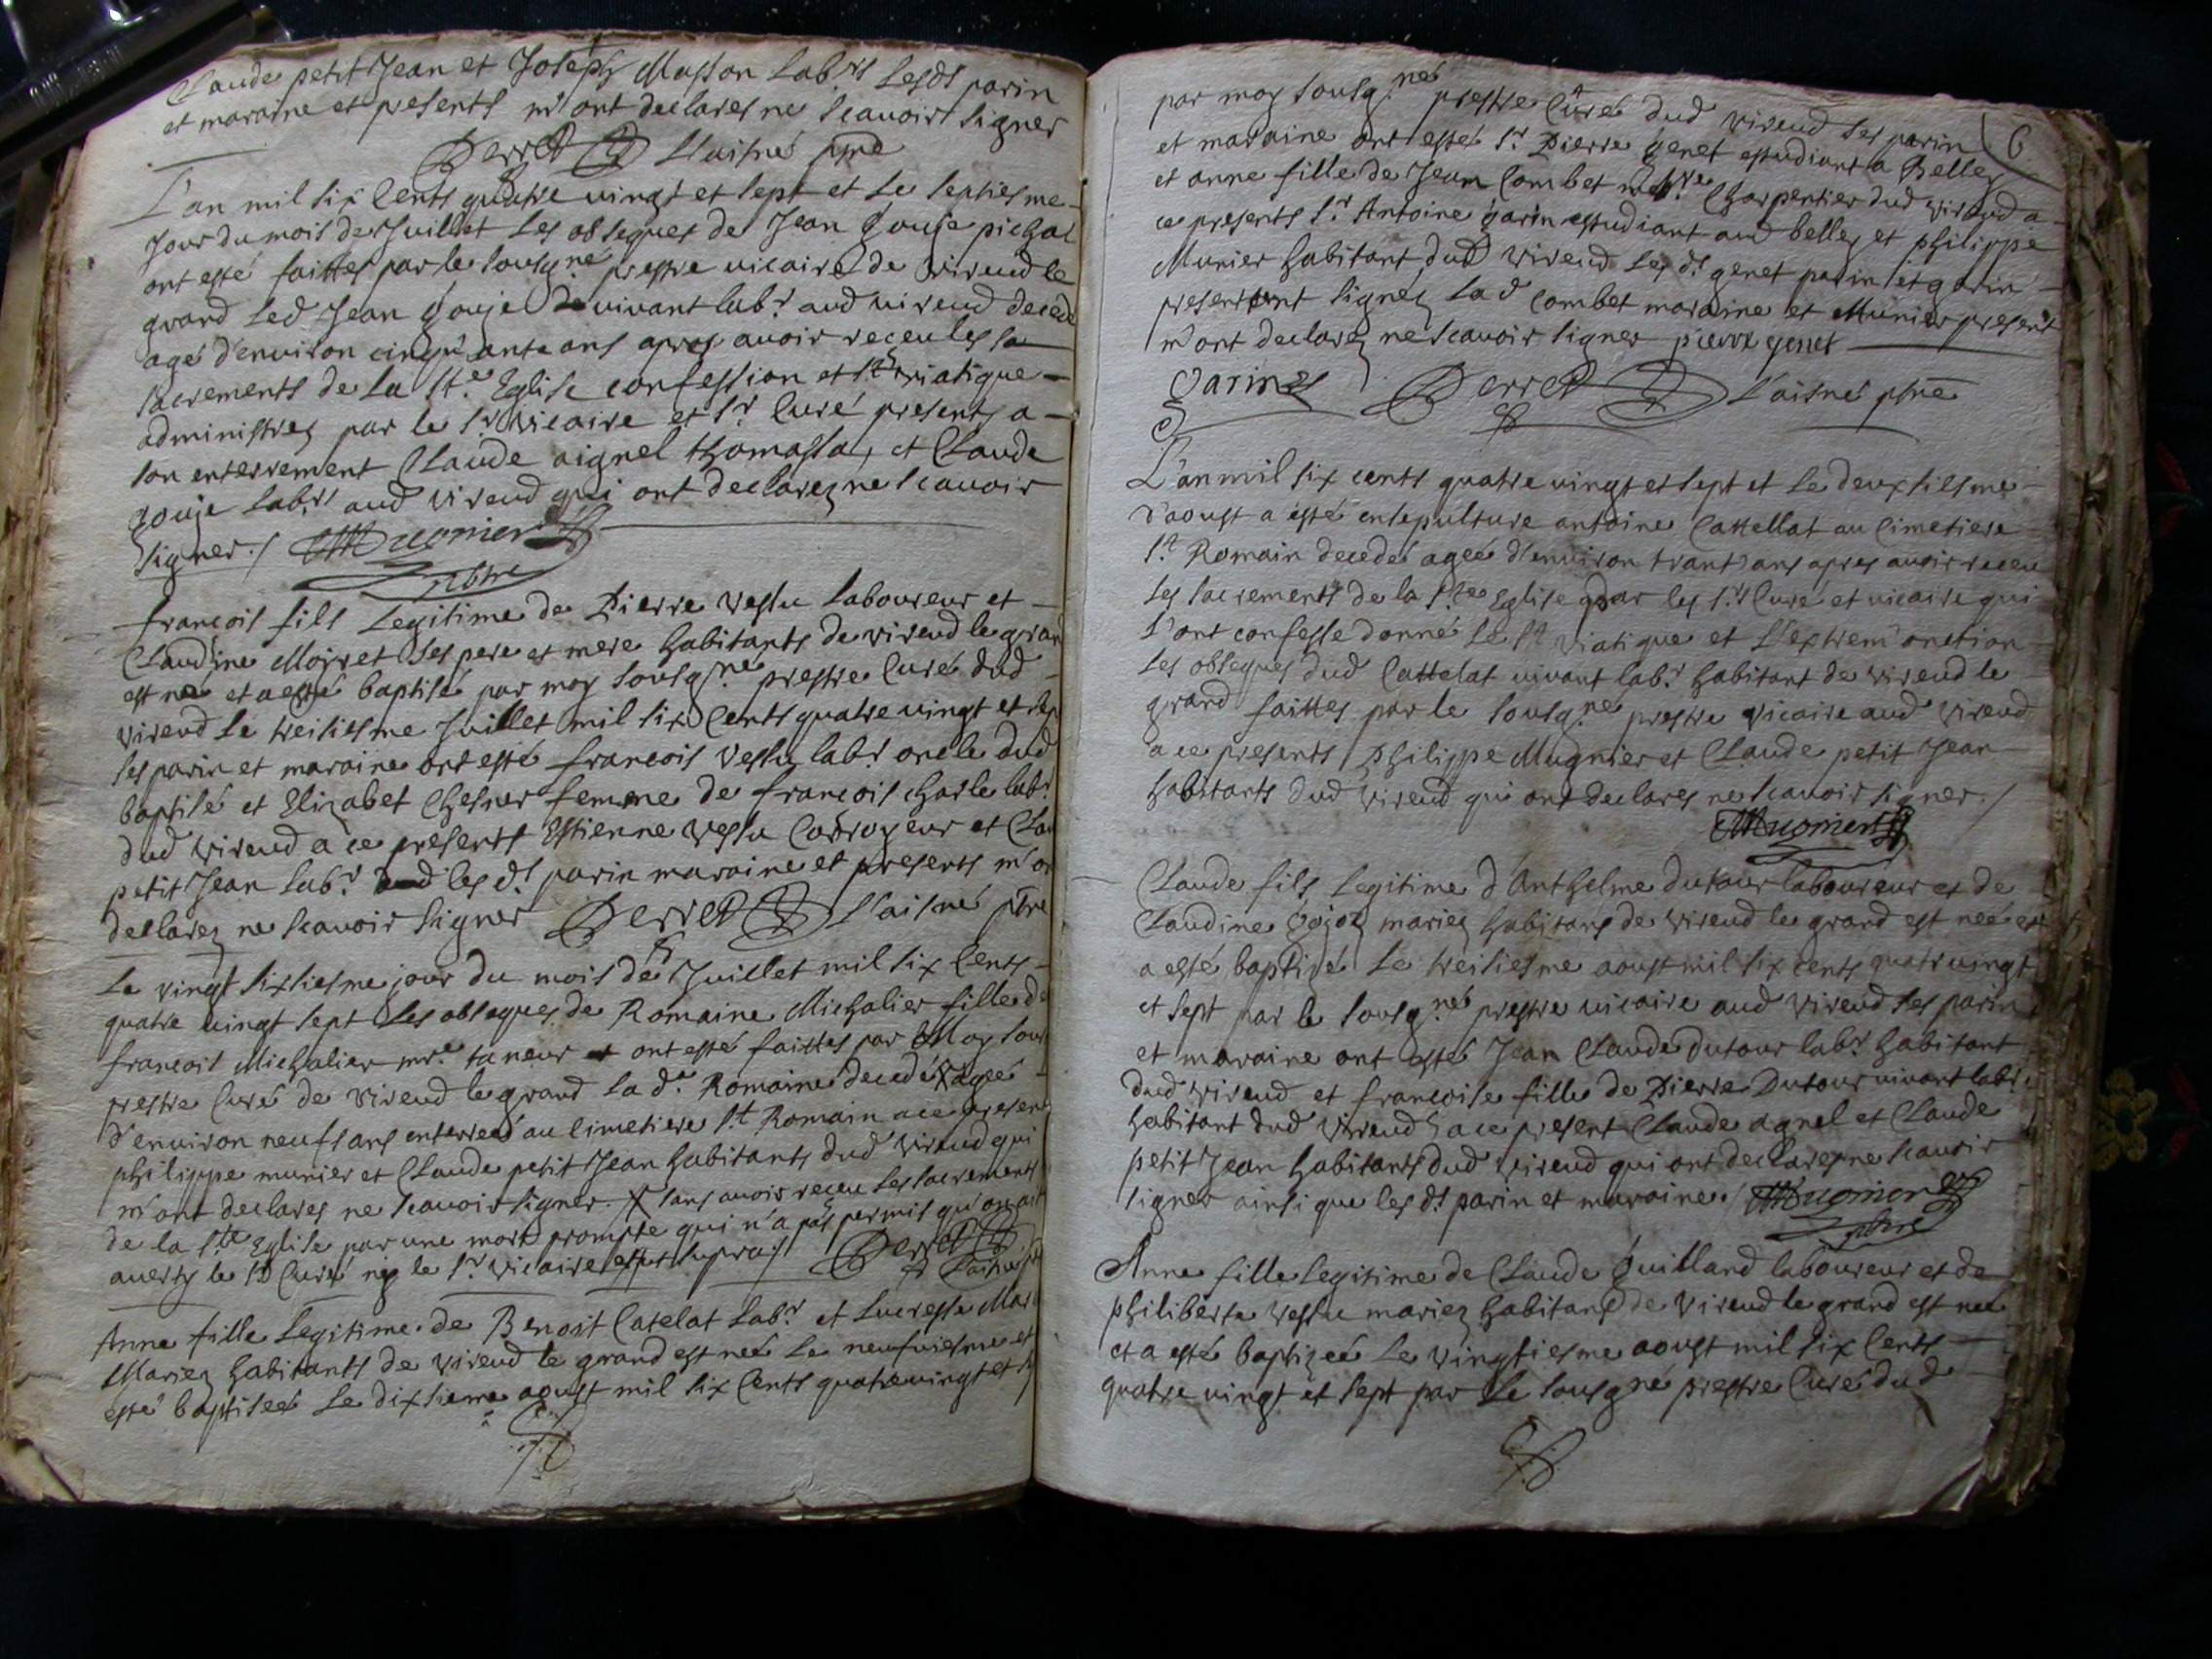 Claude petit Jean et Joseph Masson Lab.rs Lesd.s parin
et maraine et presents m'ont declares ne scauoir signer
Perret L'aisné ptre
L'an mil six Cents quatre uingt et sept et Le septiesme
Jour du mois de Juillet Les obseques de Jean Gouje pichat
ont esté faittes par le sousg.né prestre uicaire de Virieud le
grand Led Jean Gouje uiuant lab.r aud uirieud decede
agé d'enuiron cinquante ans apres auoir receu les sa
sacrements de La S.te Eglise confession et S.t viatique
administrez par le S.r Vicaire et S.r Curé presents a
son enterrement Claude aignel thomassa, et Claude
gouje Lab.rs aud Virieud qui ont declarez ne scauoir
signer./ Mugnier
pbtre
francois fils Legitime de Pierre Vessu Laboureur et
Claudine Moyret ses pere et mere habitants de virieud le gran
est né et a esté baptisé par moy sousg.né prestre Curé dud
virieud Le treisiesme Juillet mil six Cents quatre uingt et sep
ses parin et maraine ont esté francois Vessu lab.r oncle dud
baptisé et Elizabet Chesner femme de francois charle lab.r
dud virieud a ce presents Estienne Vessu Corroyeur et Clau
petit Jean Lab.r les d.s parin maraine et presents m'on
declarez ne scauoir signer Perret L'aisné ptre
Le vingt sixiesme jour du mois de Juillet mil six Cents
quatre uingt sept Les obseques de Romaine Michalier fille de
francois Michalier m.re taneur ont esté faittes par Moy sous
prestre Curé de virieud le grand la d.e Romaine decedé X ageé
d'enuiron neuf ans enterreé au Cimetiere S.t Romain a ce presen
philippe munier et Claude petit Jean habitants dud virieud qui
m'ont declares ne scauoir signer. X sans auoir receu Les sacrements
de la S.te Eglise par une mort prompte qui n'a pas permis qu'on ait
auerty le S.r Curé ny le S.r vicaire Perret
L'aisné
Anne fille Legitime de Benoit Catelat Lab.r et Lucresse Mar
Mariez habitants de virieud le grand est neé Le neufuiesme et
esté baptiseé Le dixsieme aoust mil six Cents quatre uingt et
6
par moy sousg.né prestre Curé dud virieud Ses parin
et maraine ont esté S.r Pierre genet estudiant a Belley
et anne fille de Jean Combet me.re Charpentier dud virieud a
ce presents S.r Antoine garin estudiant aud belley et philippe
Munier habitant dud virieud Les d.s genet parin et garin
present ont signez La d Combet maraine et Munier present
m'ont declarez ne scauoir signer pierre genet
Garin Perret L'aisné ptre
L'an mil six cents quatre uingt et sept et Le deuxsiesme
d'aoust a esté ensepulture antoine Cattellat au Cimetiere
S.t Romain decedé ageé d'enuiron trant ans apres auoir receu
Les sacrements de la S.te Eglise par les S.rs Curé et uicaire qui
l'ont confessé donné Le S.t viatique et L'extrem'onction
Les obseques dud Cattelat uiuant lab.r habitant de virieud le
grand faittes par le sousg.né prestre vicaire aud virieud
a ce presents philippe Mugnier et Claude petit Jean
habitants dud virieud qui ont declares ne scauoir signer./
Mugnier
Claude fils Legitime d'Anthelme dutour laboureur et de
Claudine Gojoz mariez habitans de virieud le grand est neé et
a esté baptizé Le treisiesme aoust mil six cents quatr uingt
et sept par le sousg.né prestre uicaire aud virieud ses parin
et maraine ont esté Jean Claude dutour lab.r habitant
dud virieud et francoise fille de Pierre Dutour uiuant lab.r
habitant dud virieud a ce present Claude agnel et Claude
petit Jean habitants dud virieud qui ont declarez ne scauoir
signer ainsi que les d.s parin et maraine./ Mugnier
pbtre
Anne fille Legitime de Claude Guilland laboureur et de
philiberte Vessu mariez habitans de virieud le grand est neé
et a esté baptizeé Le vingtiesme aoust mil six Cents
quatre uingt et sept par Le sousg né prestre Curé dud